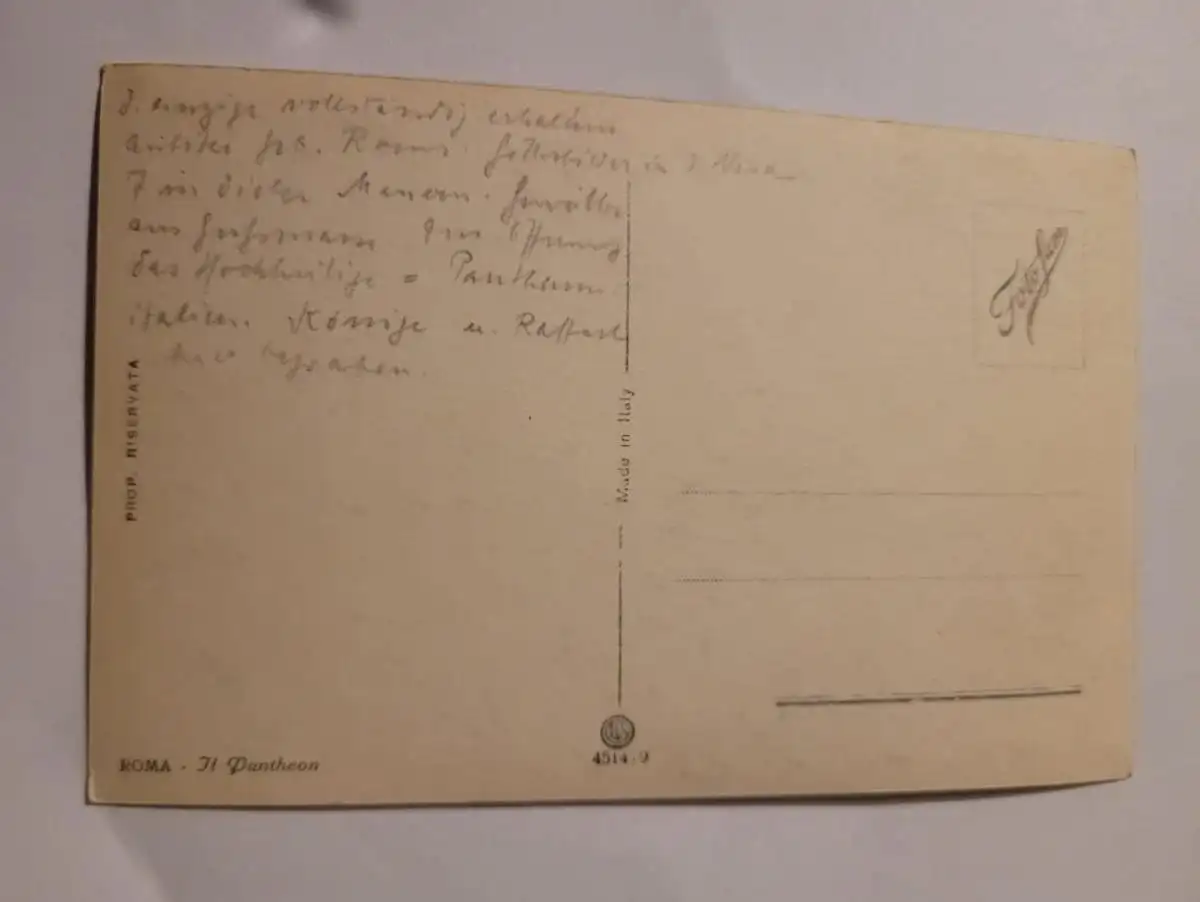 d. einzige vollständig erhaltene
antike Roms. Götterbilder in d.
7 in dicken Mauern. Gewölbe
aus Gussmasse Öffnung
das Hochheilige = Pantheon.
italien. Könige u. Raffael
hier begraben.
PROP. RISERVATA
Made in Italy
ROMA - Il Pantheon
4514/9